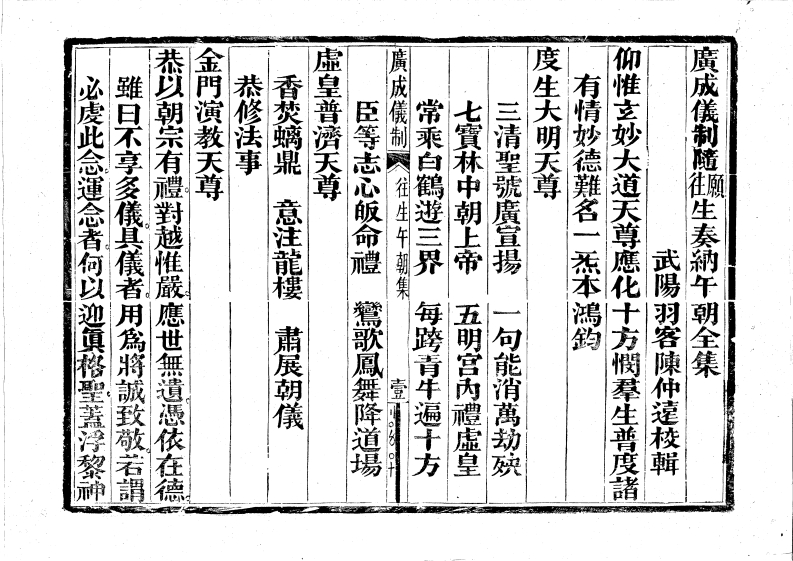 廣成儀制隨願往生奏納午朝全集
武陽羽客陳仲遠校輯
仰惟玄妙大道天尊應化十方憫羣生普度諸
有情妙德難名一炁本鴻鈞
度生大明天尊
三清聖號廣宣揚 一句能消萬劫殃
七寶林中朝上帝 五明宮內禮虛皇
常乘白鶴遊三界 每跨青牛遍十方
臣等志心皈命禮 鸞歌鳳舞降道場
廣成儀制 往生午朝集 壹
虛皇普濟天尊
香焚螭鼎 意注龍樓 肅展朝儀
恭修法事
金門演教天尊
恭以朝宗有禮。對越惟嚴。應世無遺。憑依在德。
雖曰不享多儀。具儀者用為將誠致敬。若謂
必虔此念。運念者。何以迎眞格聖。蓋浮黎神